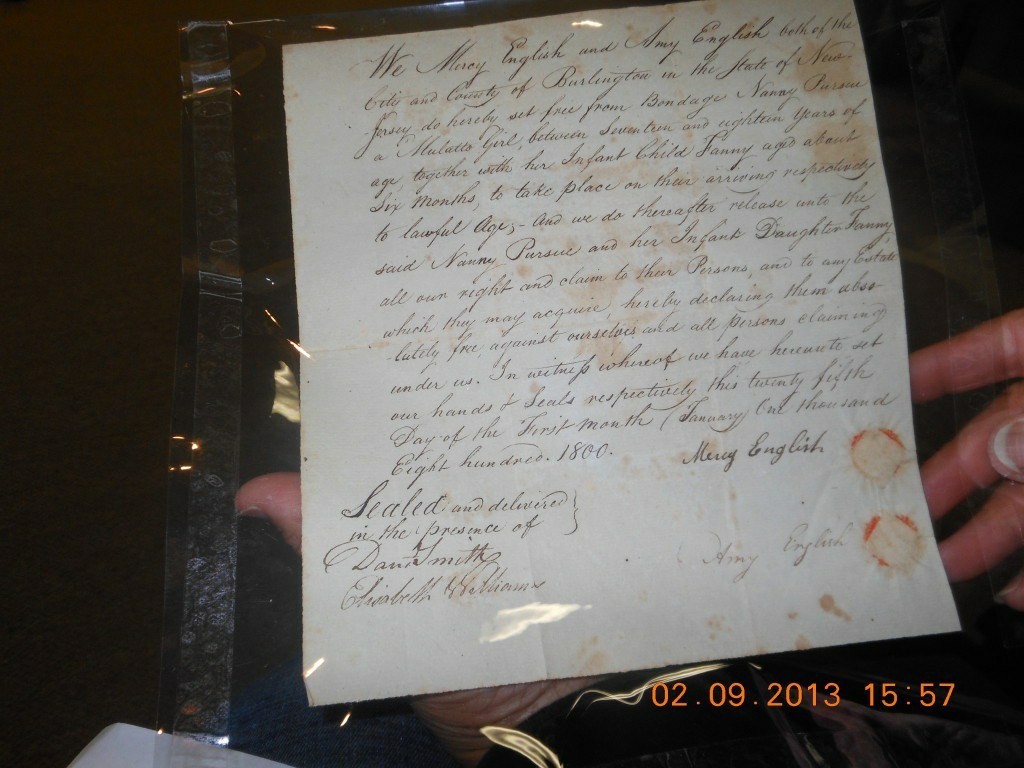 We Mercy English and Amy English both of the
City and County of Burlington in the State of New-
Jersey do hereby set free from Bondage Nanny Pursue
a Mulatto Girl, between Seventeen and eighteen Years of
age, together with her Infant Child Fanny aged about
Six Months, to take place on their arriving respectively
to lawful Age;- And we do thereafter release unto the
said Nanny Pursue and her Infant Daughter Fanny
all our right and claim to their Persons, and to any Estate
which they may acquire, hereby declaring them abso-
lutely free against ourselves and all persons claiming
under us. In witness whereof we have hereunto set
our hands & Seals respectively this twenty fifth
Day of the First Month (January) One thousand
Eight hundred. 1800.
Mercy English
Sealed and delivered
in the presence of
Amy English
Smith
Elisabeth Williams
02.09.2013 15:57